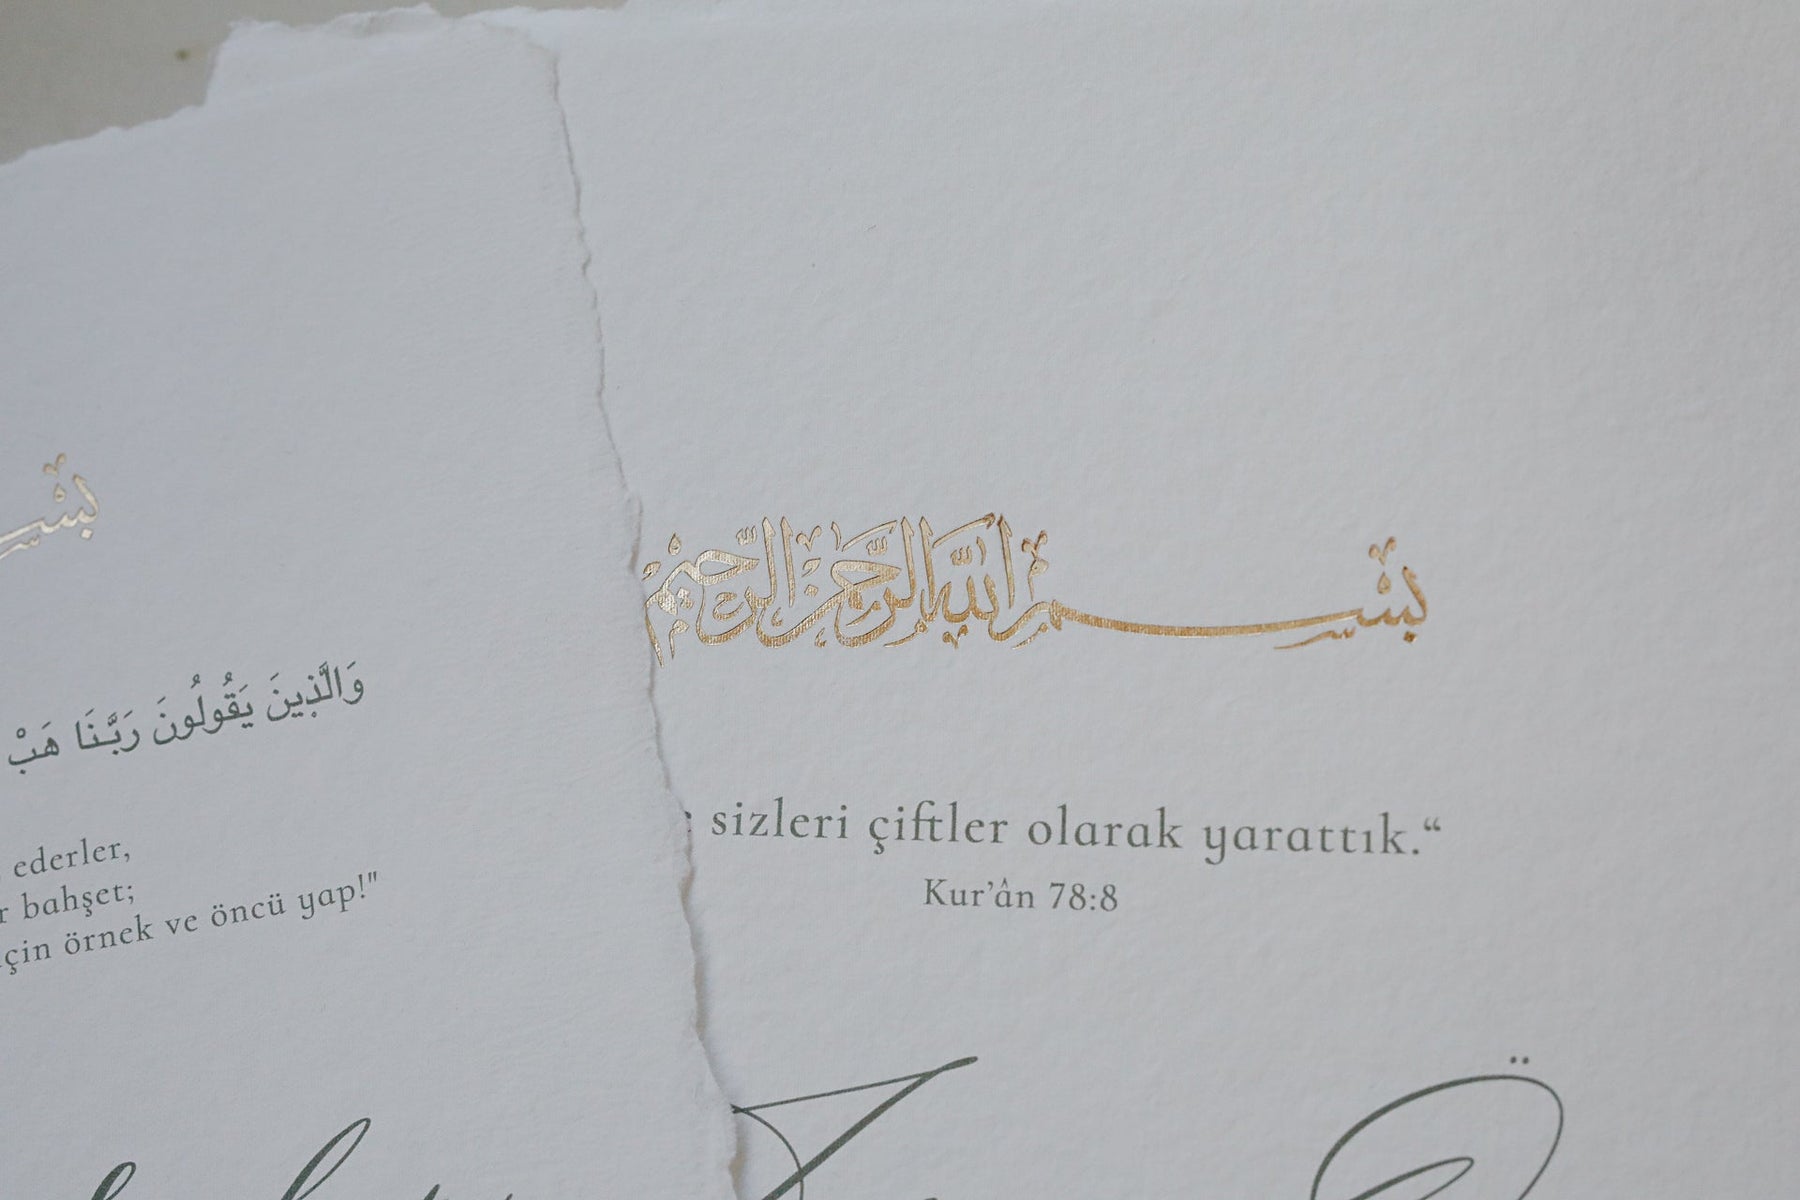 وَالَّذِينَ يَقُولُونَ رَبَّنَا هَبْ
ederler,
bahşet;
için örnek ve öncü yap!"
بسم الله الرحمن الرحيم
sizleri çiftler olarak yarattık.“
Kur’ân 78:8